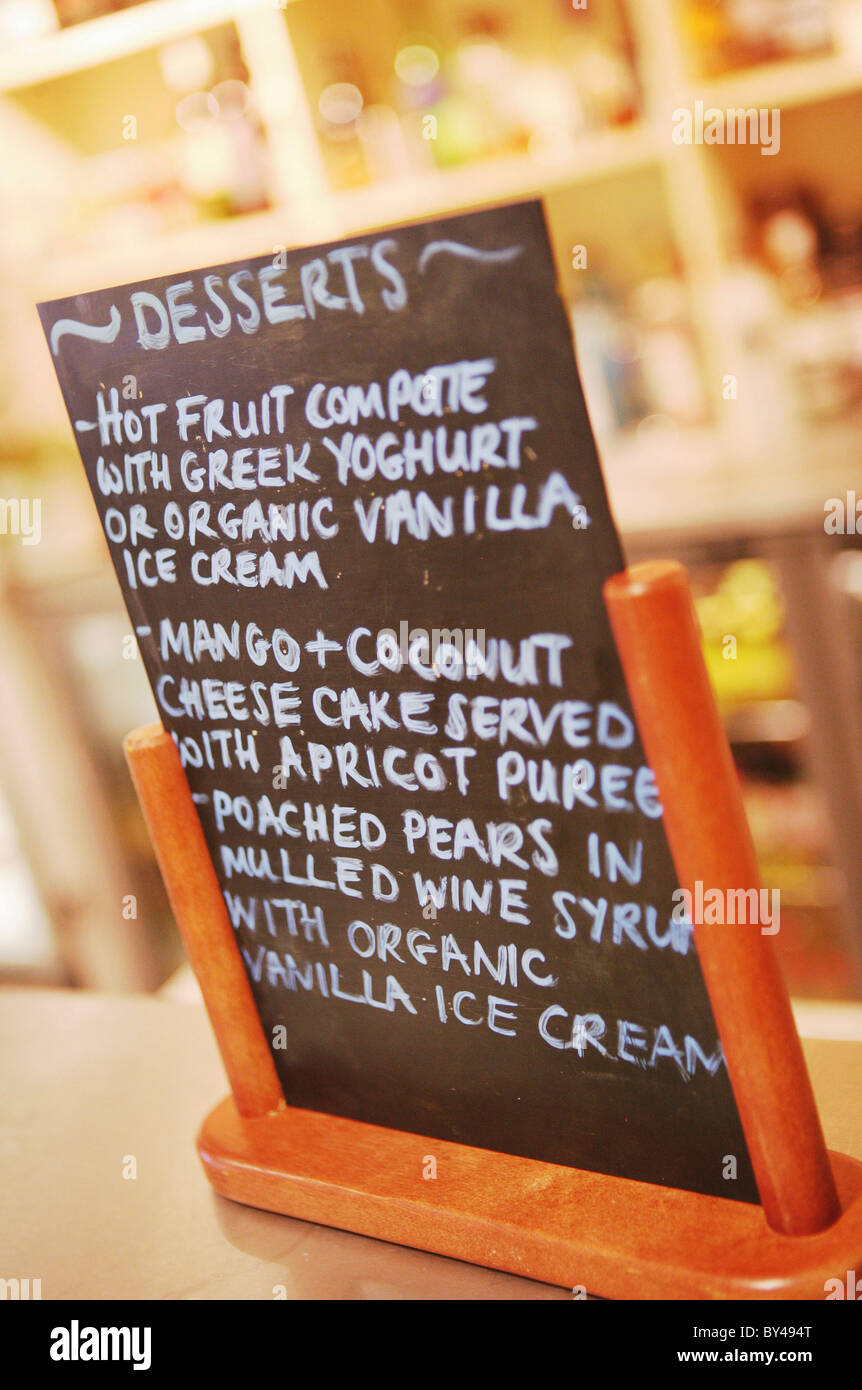 ~ DESSERTS ~
-HOT FRUIT COMPOTE
WITH GREEK YOGHURT
OR ORGANIC VANILLA
ICE CREAM
- MANGO + COCONUT
CHEESE CAKE SERVED
WITH APRICOT PUREE
- POACHED PEARS IN
MULLED WINE SYRUP
WITH ORGANIC
VANILLA ICE CREAM
alamy
Image ID: BY494T
www.alamy.com